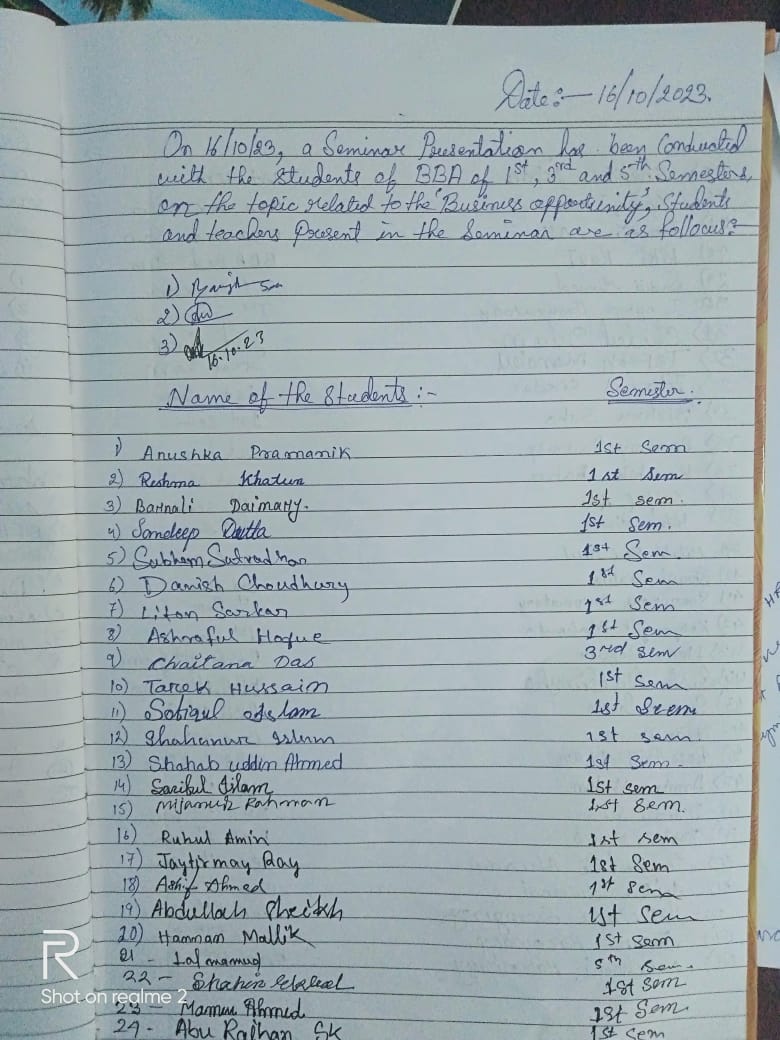 Date:- 16/10/2023.
On 16/10/23, a Seminar Presentation has been Conducted
with the students of BBA of 1st, 3rd and 5th Semesters,
on the topic related to the 'Business opportunity', Students
and teachers Present in the Seminar are as follows:
1)
2)
3) 16.10.23
Name of the Students :- Semester.
1) Anushka Pramanik 1st Sem
2) Reshma Khatun 1st Sem
3) Barnali Daimary. 1st sem.
4) Sandeep Dutta 1st Sem.
5) Subham Sutradhar 1st Sem.
6) Danish Choudhury 1st Sem
7) Liton Sarkar 1st Sem
8) Ashraful Hoque 1st Sem
9) Chaitana Das 3rd sem
10) Tarek Hussain 1st Sem
11) Sofiqul Islam 1st Sem
12) Shahanur Islam 1st sem.
13) Shahab uddin Ahmed 1st Sem.
14) Saribul Islam 1st sem
15) Mijanur Rahman 1st Sem.
16) Ruhul Amin 1st sem
17) Jaytirmay Ray 1st Sem
18) Ashif Ahmed 1st Sem
19) Abdullah Sheikh 1st Sem
20) Hamman Mallik 1st Sem
21 - Lal mamud 5th Sem.
22 - Shahin 1st Sem
23 - Mamun Ahmed 1st Sem.
24 - Abu Raihan Sk 1st Sem
R
Shot on realme 2